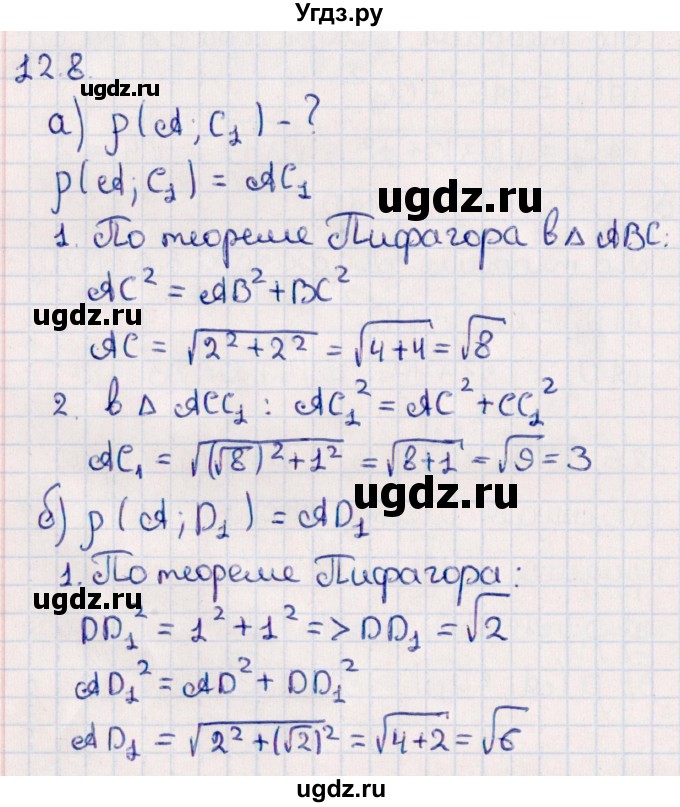 Угдз.ру
12.8.
ugdz.ru
а) ρ(A; C₁) - ?
ρ(A; C₁) = AC₁
ugdz.ru
1. По теореме Пифагора в △ ABC:
AC² = AB² + BC²
ugdz.ru
AC = √(2² + 2²) = √(4+4) = √8
2. в △ ACC₁ : AC₁² = AC² + CC₁²
ugdz.ru
AC₁ = √((√8)² + 1²) = √(8+1) = √9 = 3
ugdz.ru
б) ρ (A; D₁) = AD₁
1. По теореме Пифагора:
ugdz.ru
DD₁² = 1² + 1² => DD₁ = √2
AD₁² = AD² + DD₁²
ugdz.ru
AD₁ = √(2² + (√2)²) = √(4+2) = √6
ugdz.ru